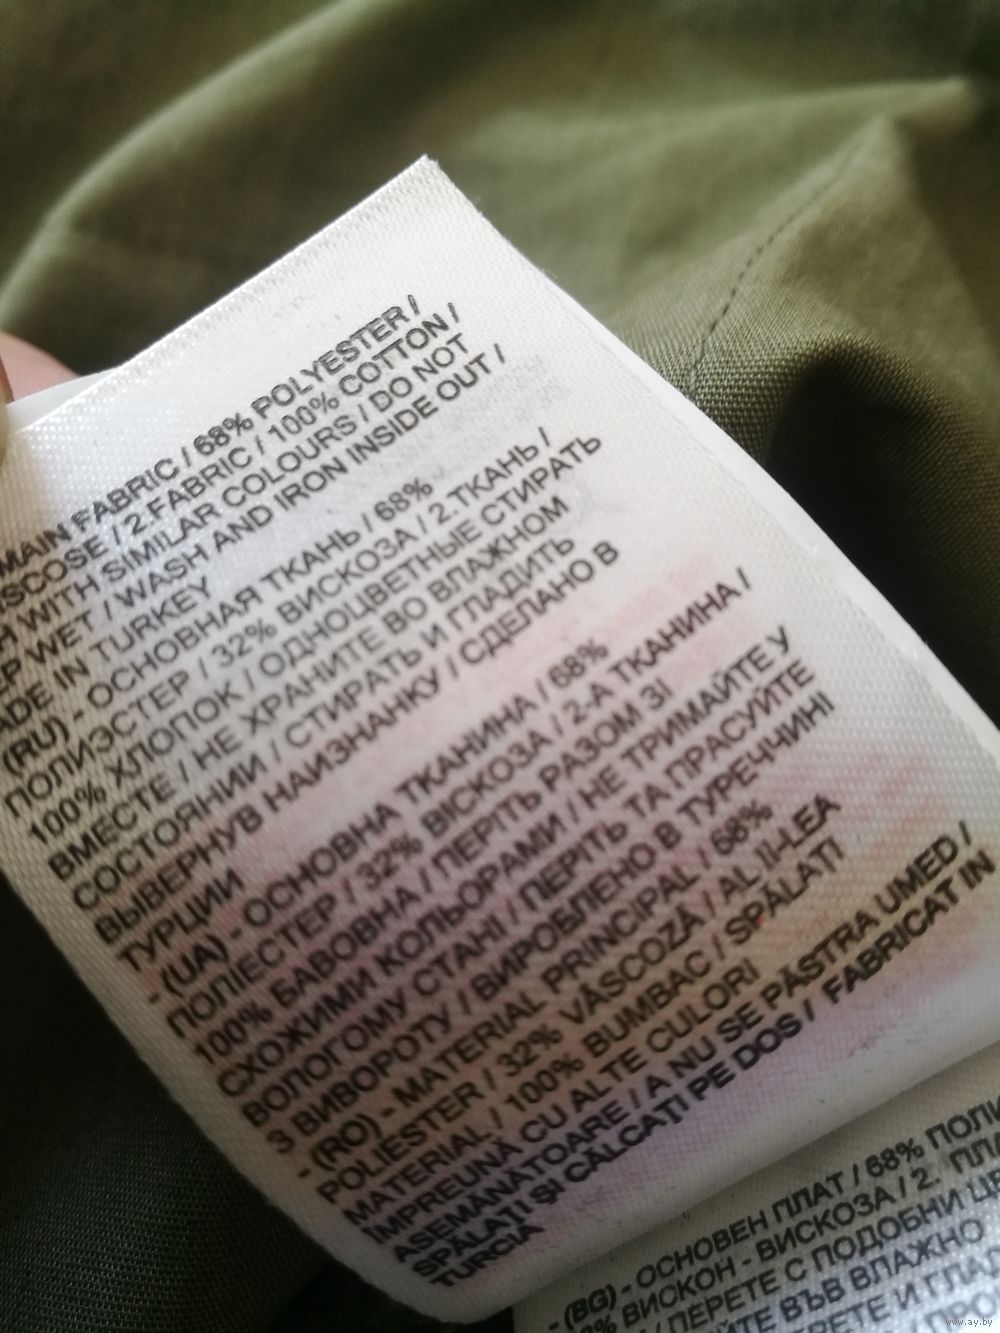 MAIN FABRIC / 68% POLYESTER /
VISCOSE / 2.FABRIC / 100% COTTON /
WITH SIMILAR COLOURS / DO NOT
WET / WASH AND IRON INSIDE OUT /
MADE IN TURKEY
(RU) - ОСНОВНАЯ ТКАНЬ / 68%
ПОЛИЭСТЕР / 32% ВИСКОЗА / 2.ТКАНЬ /
100% ХЛОПОК / ОДНОЦВЕТНЫЕ СТИРАТЬ
ВМЕСТЕ / НЕ ХРАНИТЕ ВО ВЛАЖНОМ
СОСТОЯНИИ / СТИРАТЬ И ГЛАДИТЬ
ВЫВЕРНУВ НАИЗНАНКУ / СДЕЛАНО В
ТУРЦИИ
- (UA) - ОСНОВНА ТКАНИНА / 68%
ПОЛІЕСТЕР / 32% ВІСКОЗА / 2-А ТКАНИНА /
100% БАВОВНА / ПЕРІТЬ РАЗОМ ЗІ
СХОЖИМИ КОЛЬОРАМИ / НЕ ТРИМАЙТЕ У
ВОЛОГОМУ СТАНІ / ПЕРІТЬ ТА ПРАСУЙТЕ
З ВИВОРОТУ / ВИРОБЛЕНО В ТУРЕЧЧИНІ
- (RO) - MATERIAL PRINCIPAL / 68%
POLIESTER / 32% VÂSCOZĂ / AL II-LEA
MATERIAL / 100% BUMBAC / SPĂLATI
ÎMPREUNĂ CU ALTE CULORI
ASEMĂNATOARE / A NU SE PĂSTRA UMED /
SPĂLAȚI ȘI CĂLCAȚI PE DOS / FABRICAT IN
TURCIA
- (BG) - ОСНОВЕН ПЛАТ / 68%
ВИСКОН - ВИСКОЗА / 2.
/ ПЕРЕТЕ С ПОДОБНИ
ВЪВ ВЛАЖНО
И
www.ay.by